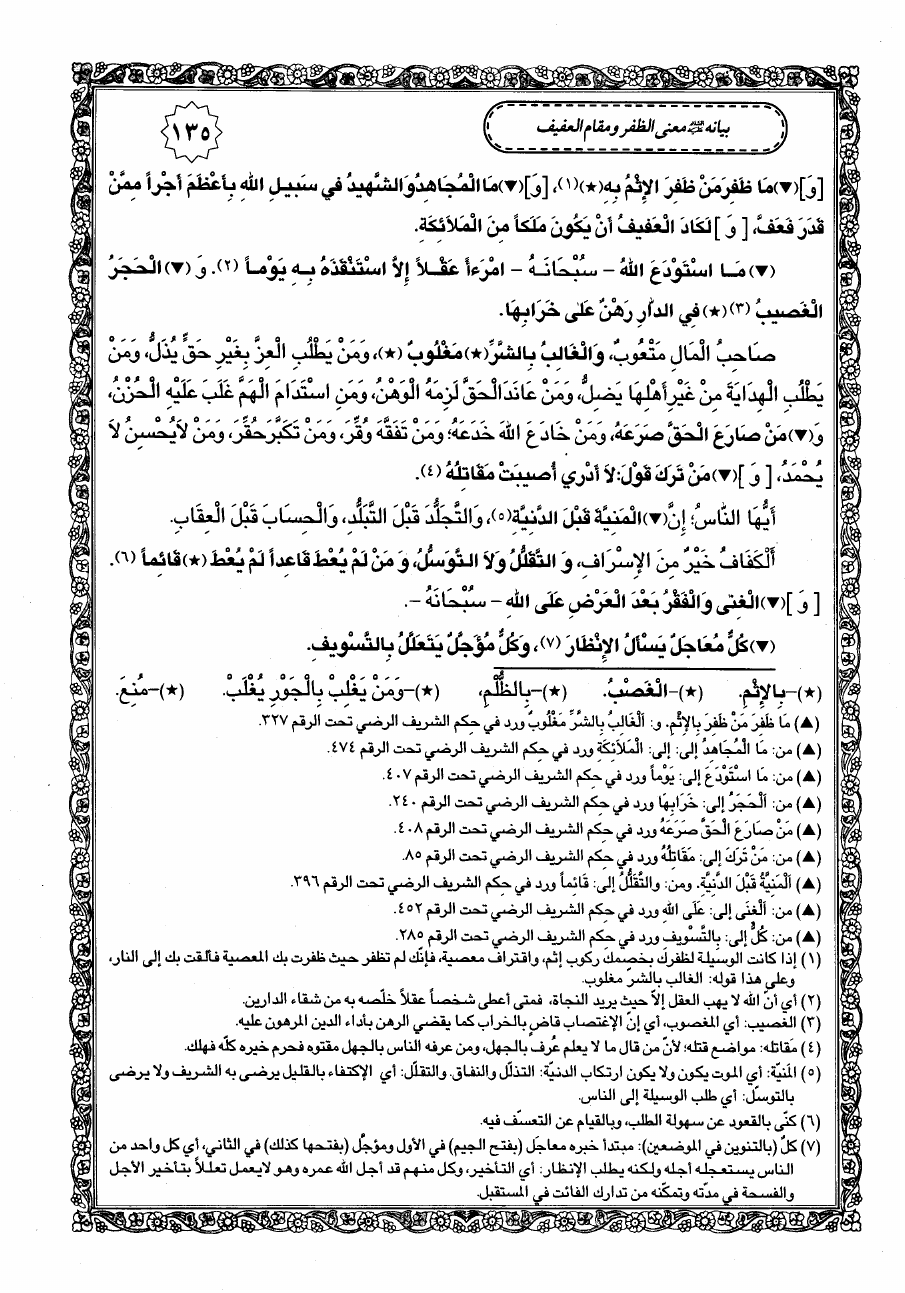 بيانه عليه السلام معنى الظفر ومقام العفيف
١٣٥
[وَ](▼) مَا ظَفِرَ مَنْ ظَفِرَ الإِثْمُ بِهِ(★)(١)، [وَ](▼)مَا الْمُجَاهِدُ وَالشَّهِيدُ في سَبيلِ اللهِ بِأَعْظَمَ أَجْراً مِمَّنْ
قَدَرَ فَعَفَّ، [ وَ ] لَكَادَ الْعَفيفُ أَنْ يَكُونَ مَلَكاً مِنَ الْمَلاَئِكَةِ.
(▼) مَـا اسْتَوْدَعَ اللهُ - سُبْحَانَـهُ - امْرَءاً عَقْـلاً إِلاَّ اسْتَنْقَذَهُ بِـهِ يَوْمـاً (٢). وَ (▼) الْحَجَرُ
الْغَصيبُ (٣)(★) فِي الدَّارِ رَهْنٌ عَلى خَرَابِهَا.
صَاحِبُ الْمَالِ مَتْعُوبٌ، وَالْغَالِبُ بِالشَّرِّ(★) مَغْلُوبٌ (★)، وَمَنْ يَطْلُبِ الْعِزَّ بِغَيْرِ حَقٍّ يُذَلُّ، وَمَنْ
يَطْلُبِ الْهِدَايَةَ مِنْ غَيْرِ أَهْلِهَا يَضِلُّ، وَمَنْ عَانَدَ الْحَقَّ لَزِمَهُ الْوَهْنُ، وَمَنِ اسْتَدَامَ الْهَمَّ غَلَبَ عَلَيْهِ الْحُزْنُ،
وَ(▼) مَنْ صَارَعَ الْحَقَّ صَرَعَهُ، وَمَنْ خَادَعَ اللهَ خَدَعَهُ؛ وَمَنْ تَفَقَّهَ وُقِّرَ، وَمَنْ تَكَبَّرَ حُقِّرَ، وَمَنْ لاَ يُحْسِنُ لاَ
يُحْمَدُ، [ وَ ](▼) مَنْ تَرَكَ قَوْلَ: لاَ أَدْري أُصيبَتْ مَقَاتِلُهُ (٤).
أَيُّهَا النَّاسُ؛ إِنَّ(▼) الْمَنِيَّةَ قَبْلَ الدَّنِيَّةِ(٥)، وَالتَّجَلُّدَ قَبْلَ التَّبَلُّدِ، وَالْحِسَابَ قَبْلَ الْعِقَابِ.
أَلْكَفَافُ خَيْرٌ مِنَ الإِسْرَافِ، وَ التَّقَلُّلُ وَلاَ التَّوَسُّلُ، وَ مَنْ لَمْ يُعْطَ قَاعِداً لَمْ يُعْطَ (★) قَائِماً (٦).
[ وَ ](▼) الْغِنى وَالْفَقْرُ بَعْدَ الْعَرْضِ عَلَى اللهِ - سُبْحَانَهُ -.
(▼) كُلٌّ مُعَاجَلٌ يَسْأَلُ الإِنْظَارَ (٧)، وَكُلٌّ مُؤَجَّلٌ يَتَعَلَّلُ بِالتَّسْويفِ.
(★)-بِالإِثْمِ. (★)-الْغَصْبُ. (★)-بِالظُّلْمِ. (★)-وَمَنْ يَغْلِبْ بِالْجَوْرِ يُغْلَبْ. (★)-مُنِعَ.
(▲) مَا ظَفِرَ مَنْ ظَفِرَ بِالإِثْمِ. و: أَلْغَالِبُ بِالشَّرِّ مَغْلُوبٌ ورد في حكم الشريف الرضي تحت الرقم ٣٢٧.
(▲) من: مَا الْمُجَاهِدُ إلى: إلى: الْمَلاَئِكَةِ ورد في حكم الشريف الرضي تحت الرقم ٤٧٤.
(▲) من: مَا اسْتَوْدَعَ إلى: يَوْماً ورد في حكم الشريف الرضي تحت الرقم ٤٠٧.
(▲) من: أَلْحَجَرُ إلى: خَرَابِهَا ورد في حكم الشريف الرضي تحت الرقم ٢٤٠.
(▲) مَنْ صَارَعَ الْحَقَّ صَرَعَهُ ورد في حكم الشريف الرضي تحت الرقم ٤٠٨.
(▲) من: مَنْ تَرَكَ إلى: مَقَاتِلُهُ ورد في حكم الشريف الرضي تحت الرقم ٨٥.
(▲) أَلْمَنِيَّةُ قَبْلَ الدَّنِيَّةِ. ومن: والتَّقَلُّلُ إلى: قَائِماً ورد في حكم الشريف الرضي تحت الرقم ٣٩٦.
(▲) من: أَلْغِنَى إلى: عَلَى الله ورد في حكم الشريف الرضي تحت الرقم ٤٥٢.
(▲) من: كُلُّ إلى: بِالتَّسْويف ورد في حكم الشريف الرضي تحت الرقم ٢٨٥.
(١) إذا كانت الوسيلة لظفرك بخصمك ركوب إثم، واقتراف معصية، فإنّك لم تظفر حيث ظفرت بك المعصية فألقت بك إلى النار،
وعلى هذا قوله: الغالب بالشرّ مغلوب.
(٢) أي أنّ الله لا يهب العقل إلاّ حيث يريد النجاة، فمتى أعطى شخصاً عقلاً خلّصه به من شقاء الدارين.
(٣) الغصيب: أي المغصوب، أي إنّ الإغتصاب قاضٍ بالخراب كما يقضي الرهن بأداء الدين المرهون عليه.
(٤) مَقاتله: مواضع قتله؛ لأنّ من قال ما لا يعلم عُرف بالجهل، ومن عرفه الناس بالجهل مقتوه فحرم خيره كلّه فهلك.
(٥) المَنيّة: أي الموت يكون ولا يكون ارتكاب الدنيّة: التذلّل والنفاق. والتقلّل: أي الإكتفاء بالقليل يرضى به الشريف ولا يرضى
بالتوسّل: أي طلب الوسيلة إلى الناس.
(٦) كنّى بالقعود عن سهولة الطلب، وبالقيام عن التعسّف فيه.
(٧) كلٌ (بالتنوين في الموضعين): مبتدأ خبره معاجَل (بفتح الجيم) في الأول ومؤجَّل (بفتحها كذلك) في الثاني، أي كل واحد من
الناس يستعجله أجله ولكنه يطلب الإنظار: أي التأخير، وكل منهم قد أجل الله عمره وهو لايعمل تعللاً بتأخير الأجل
والفسحة في مدّته وتمكّنه من تدارك الفائت في المستقبل.